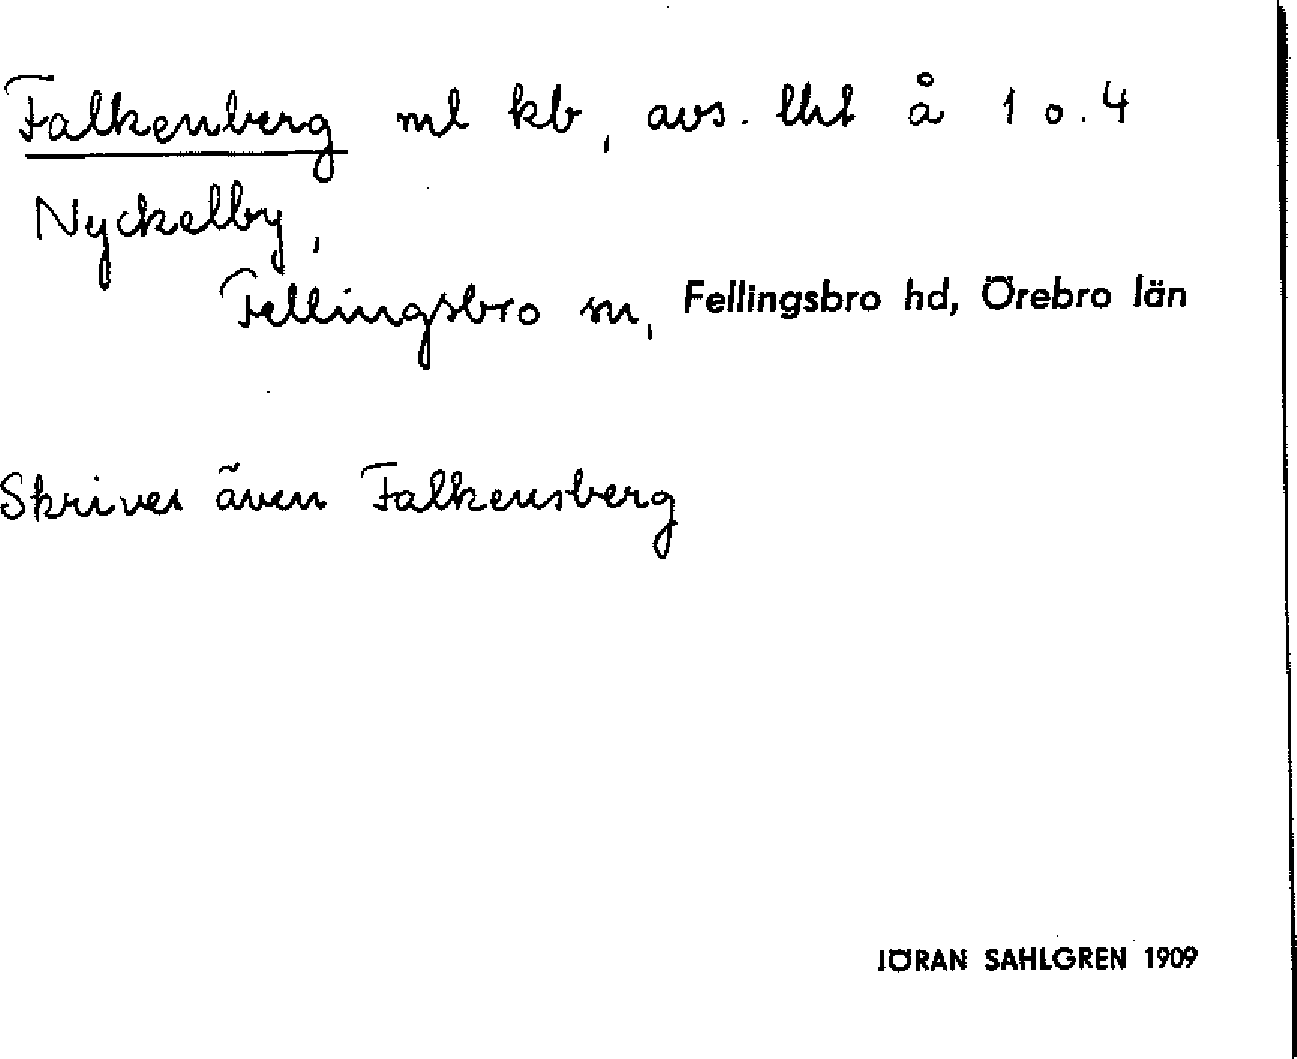 Falkenberg ml kb, avs. lht å 1 o. 4
Nyckelby,
Fellingsbro sn, Fellingsbro hd, Örebro län
Skrives även Falkensberg
JÖRAN SAHLGREN 1909